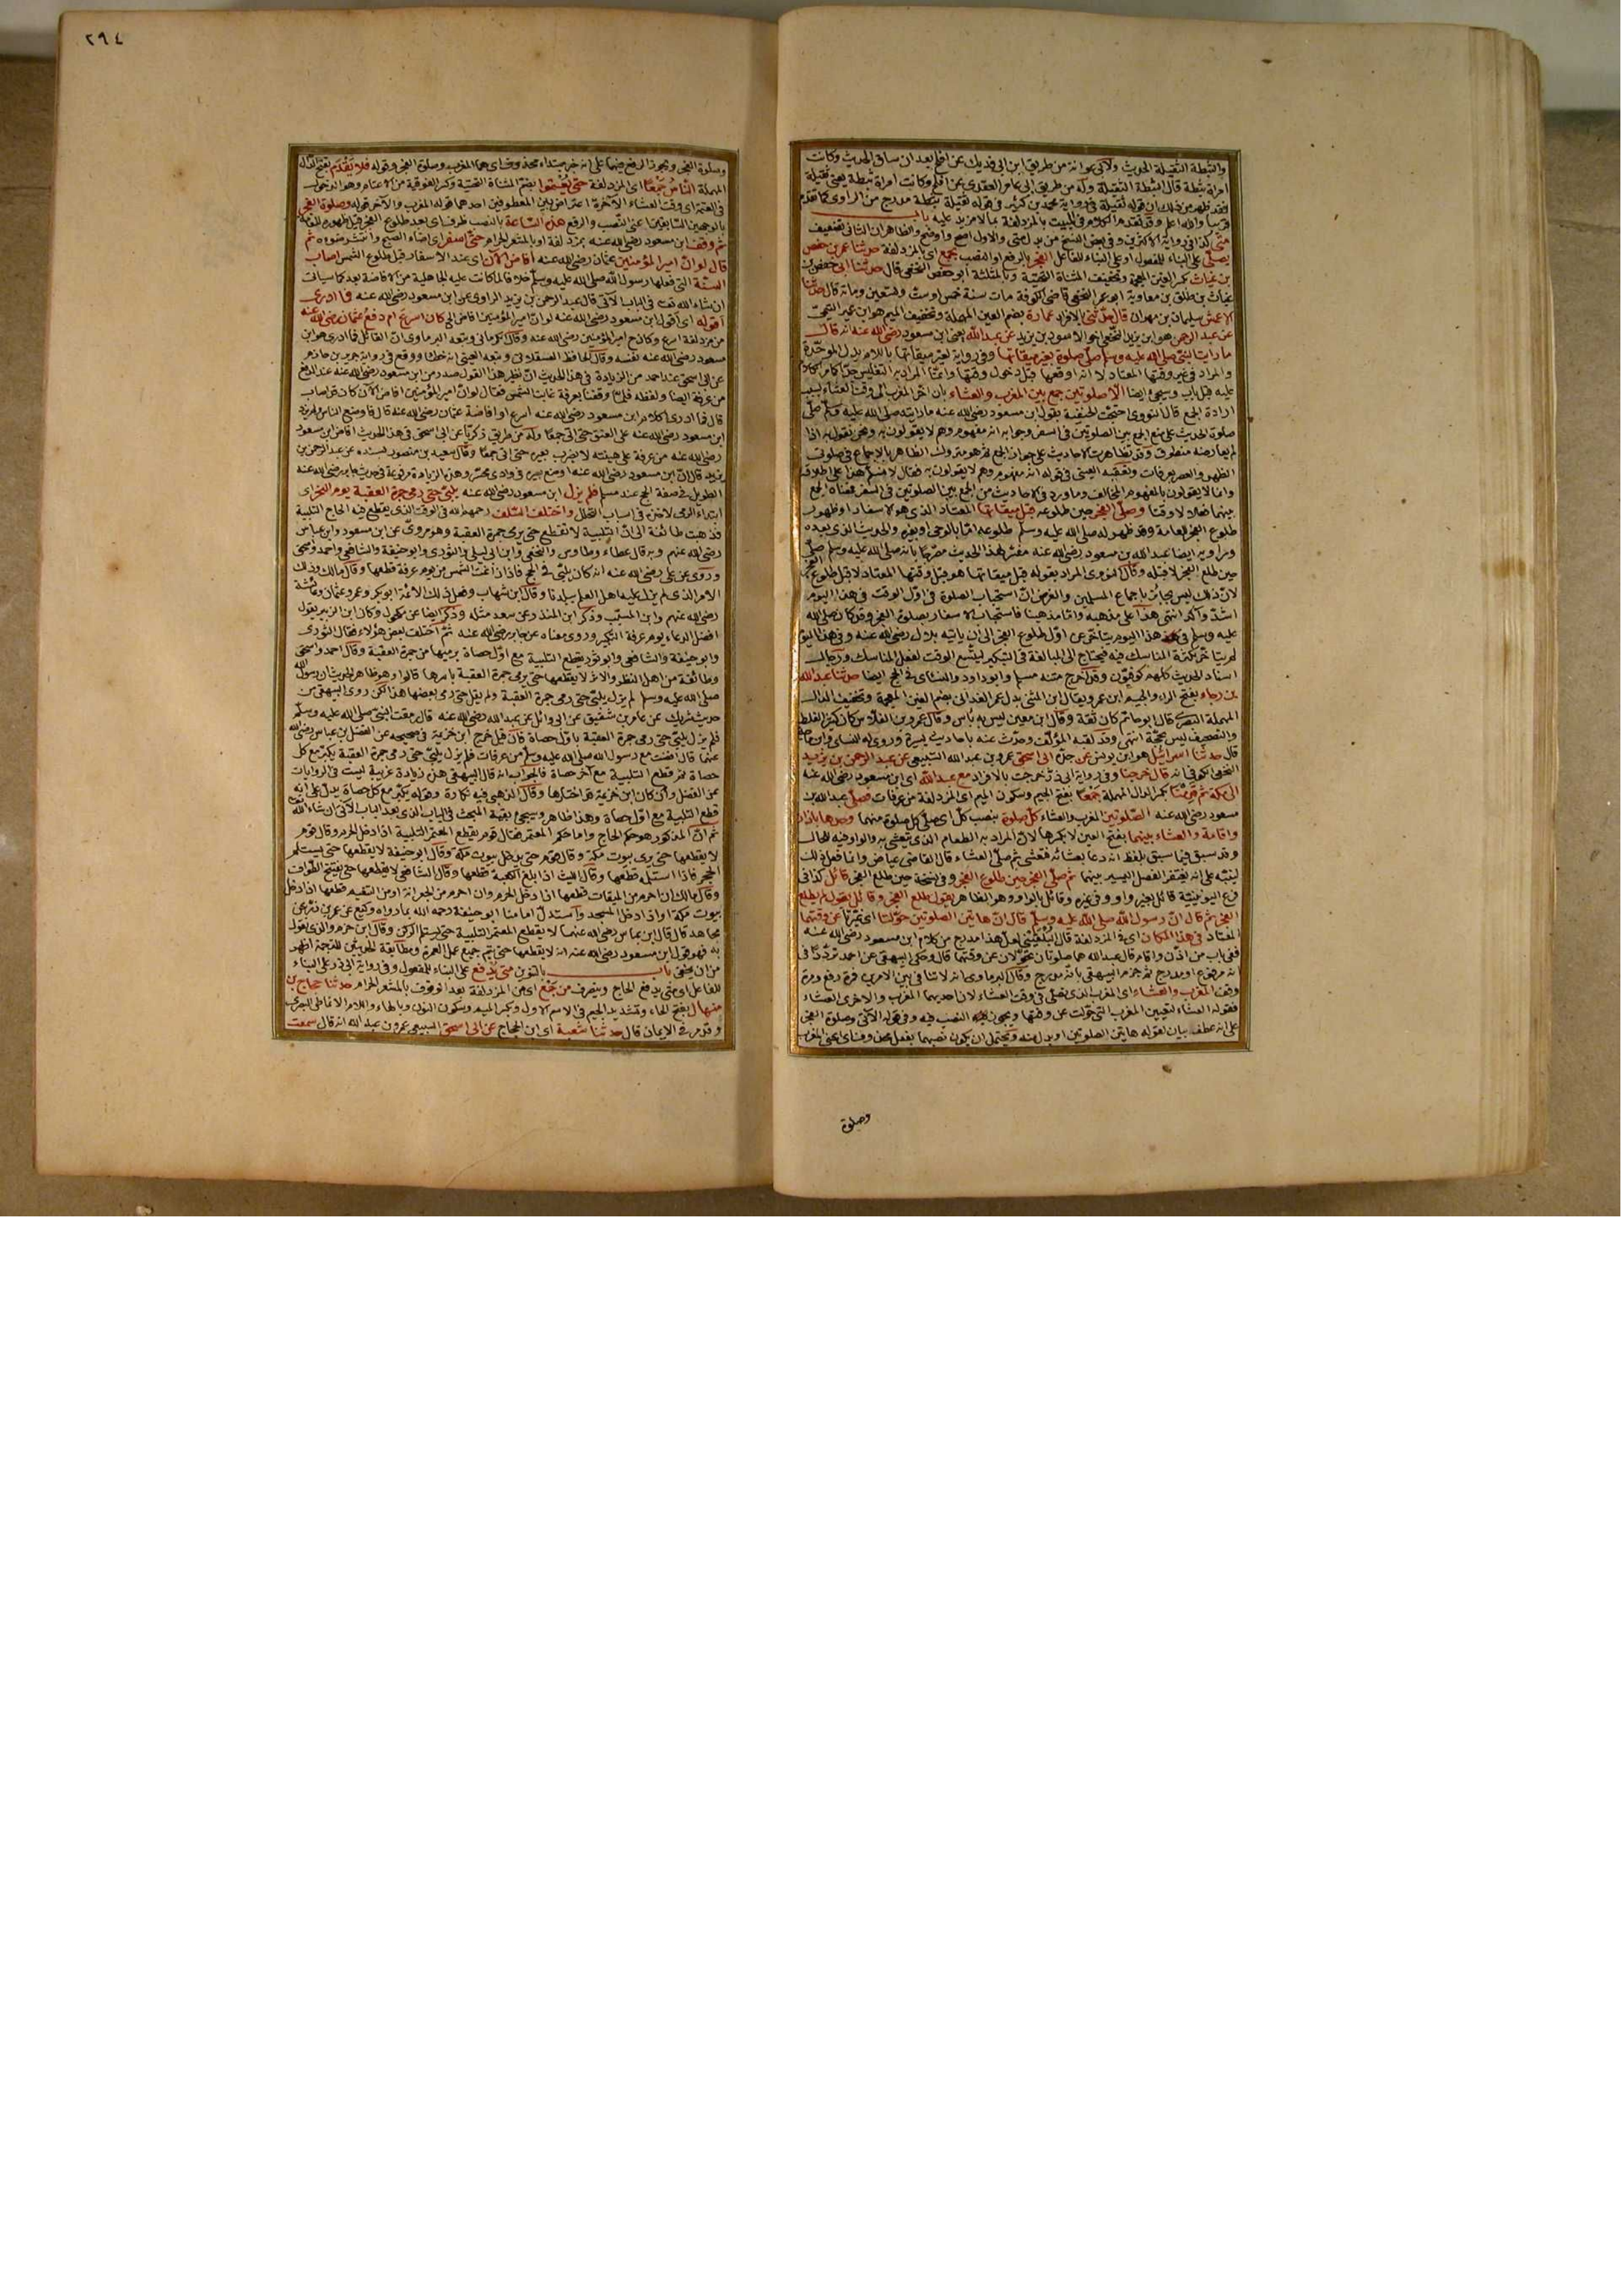 والثبطة الثقيلة الحديث ولابى عوانة من طريق ابن ابى فديك عن افلح بعد ان ساق الحديث وكانت
امراة ثبطة قال الثبطة الثقيلة وله من طريق ابى عامر العقدى عن افلح وكانت امراة ثبطة يعنى ثقيلة
فقد ظهر من ذلك ان قوله ثقيلة فى رواية محمد بن كثير فى قوله ثقيلة ثبطة مدرج من الراوى كما تقدم
قريبا والله اعلم وقد تقدم الكلام فى المبيت بالمزدلفة بما لا مزيد عليه باب
متى كذا فى رواية الاكثرين وفى بعض النسخ من بدل متى والاول اصح واوضح والظاهر ان الثانى تصحيف
يصلى على البناء للمفعول او على البناء للفاعل الفجر بالرفع او النصب بجمع اى بالمزدلفة حدثنا عمر بن حفص
بن غياث بكسر الغين المعجمة وتخفيف المثناة التحتية وبالمثلثة ابو حفص النخعى قال حدثنا ابى حفص بن
غياث بن طلق بن معاوية ابو عمر النخعى قاضى الكوفة مات سنة خمس اوست وتسعين ومائة قال حدثنا
الاعمش سليمان بن مهران قال حدثنى بالافراد عمارة بضم العين المهملة وتخفيف الميم هو ابن عمير التيمى
عن عبد الرحمن هو ابن يزيد النخعى اخو الاسود بن يزيد عن عبد الله يعنى ابن مسعود رضى الله عنه انه قال
ما رايت النبى صلى الله عليه وسلم صلى صلوة بغير ميقاتها وفى رواية لغير ميقاتها باللام بدل الموحدة
والمراد فى غير وقتها المعتاد لا انه اوقعها قبل دخول وقتها وانما المراد به التغليس جدا كما مر الكلام
عليه قبل باب وسيجئ ايضا الا صلوتين جمع بين المغرب والعشاء بان اخر المغرب الى وقت العشاء بسبب
ارادة الجمع قال النووى احتجت الحنفية بقول ابن مسعود رضى الله عنه ما رايته صلى الله عليه وسلم صلى
صلوة الحديث على منع الجمع بين الصلوتين فى السفر وجوابه انه مفهوم وهم لا يقولون به ونحن نقول به اذا
لم يعارضه منطوق وقد تظاهرت الاحاديث على جواز الجمع ثم هو متروك الظاهر بالاجماع فى صلوتى
الظهر والعصر بعرفات وتعقبه العينى فى قوله انه مفهوم وهم لا يقولون به فقال لا نسلم هذا على اطلاقه
وانما لا يقولون بالمفهوم المخالف وما ورد فى الاحاديث من الجمع بين الصلوتين فى السفر فمعناه الجمع
بينهما فعلا لا وقتا وصلى الفجر حين طلوعه قبل ميقاتها المعتاد الذى هو الاسفار او ظهور
طلوع الفجر للعامة وقد ظهر له صلى الله عليه وسلم طلوعه اما بالوحى او بغيره والحديث الذى بعده
ومراويه ايضا عبد الله بن مسعود رضى الله عنه مفسر لهذا الحديث مصرحا بانه صلى الله عليه وسلم صلى
حين طلع الفجر لا قبله وقال النووى المراد بقوله قبل ميقاتها هو قبل وقتها المعتاد لا قبل طلوع الفجر
لان ذلك ليس بجائز باجماع المسلمين والغرض ان استحباب الصلوة فى اول الوقت فى هذا اليوم
اشد وآكد انتهى هذا على مذهبه واما مذهبنا فاستحباب الاسفار بصلوة الفجر وقد كان صلى الله
عليه وسلم فى غير هذا اليوم يتاخر عن اول طلوع الفجر الى ان ياتيه بلال رضى الله عنه وفى هذا اليوم
لم يتاخر لكثرة المناسك فيه فيحتاج الى المبالغة فى التبكير ليتسع الوقت لفعل المناسك ورجال
اسناد الحديث كلهم كوفيون وقد اخرج متنه مسلم وابو داود والنسائى فى الحج ايضا حدثنا عبد الله
بن رجاء بفتح الراء والجيم ابن عمرو يقال ابن المثنى بدل عمر الغدانى بضم الغين المعجمة وتخفيف الدال
المهملة البصرى قال ابو حاتم كان ثقة وقال ابن معين ليس به باس وقال عمرو بن الفلاس كان كثير الغلط
والتصحيف ليس بحجة انتهى وقد لقيه المؤلف وحدث عنه باحاديث يسيرة وروى له النسائى وابن ماجه
قال حدثنا اسرائيل هو ابن يونس عن جده ابى اسحق عمرو بن عبد الله السبيعى عن عبد الرحمن بن يزيد
النخعى الكوفى انه قال خرجنا وفى رواية ابى ذر خرجت بالافراد مع عبد الله اى ابن مسعود رضى الله عنه
الى مكة ثم قدمنا بكسر الدال المهملة جمعا بفتح الجيم وسكون الميم اى المزدلفة من عرفات صلى عبد الله بن
مسعود رضى الله عنه الصلوتين المغرب والعشاء كل صلوة بنصب كل اى صلى كل صلوة منهما وحدها باذان
واقامة والعشاء بينهما بفتح العين لا بكسرها لان المراد به الطعام الذى يتعشى به والواو فيه للحال
وقد سبق فيما سبق بلفظ انه دعا بعشائه فتعشى ثم صلى العشاء قال القاضى عياض وانما فعل ذلك
لينبه على انه يغتفر الفصل اليسير بينهما ثم صلى الفجر حين طلوع الفجر وفى نسخة حين طلع الفجر قائل كذا فى
فرع اليونينية قائل بغير واو وفى غيره وقائل بالواو وهو الظاهر يقول طلع الفجر وقائل يقول لم يطلع
الفجر ثم قال ان رسول الله صلى الله عليه وسلم قال ان هاتين الصلوتين حولتا اى غيرتا عن وقتهما
المعتاد فى هذا المكان اى فى المزدلفة قال البلقينى لعل هذا مدرج من كلام ابن مسعود رضى الله عنه
ففى باب من اذن واقام قال عبد الله هما صلوتان تحولان عن وقتهما قال وحكى البيهقى عن احمد ترددا فى
انه مرفوع او مدرج ثم جزم البيهقى بانه مدرج وقال البرماوى انه لا تنافى بين الامرين فمرة رفع ومرة
وقف المغرب والعشاء اى المغرب الذى يصلى فى وقت العشاء لان احديهما المغرب والاخرى العشاء
فقوله العشاء لتعيين المغرب التى حولت عن وقتها ويجوز النصب فيه وفى قوله الآتى وصلوة الفجر
على انه عطف بيان لقوله هاتين الصلوتين او بدل منه ويحتمل ان يكون نصبهما بفعل محذوف اى اعنى المغرب
وصلوة
٢٩٤
وصلوة الفجر ويجوز الرفع فيهما على انه خبر مبتداء محذوف اى هما المغرب وصلوة الفجر وقوله فلا يقدم بفتح الدال
المهملة الناس جمعا اى المزدلفة حتى يعتموا بضم المثناة التحتية وكسر الفوقية من الاعتام وهو الدخول
فى العتمة اى وقت العشاء الآخرة اعتراض بين المعطوفين احدهما قوله المغرب والآخر قوله وصلوة الفجر
بالوجهين السابقين اعنى النصب والرفع هذه الساعة بالنصب ظرف اى بعد طلوع الفجر قبل ظهوره للعامة
ثم وقف ابن مسعود رضى الله عنه بمزدلفة او بالمشعر الحرام حتى اسفر اى اضاء الصبح وانتشر ضوءه ثم
قال لو ان امير المؤمنين عثمان رضى الله عنه افاض الآن اى عند الاسفار قبل طلوع الشمس اصاب
السنة التى فعلها رسول الله صلى الله عليه وسلم خلافا لما كانت عليه الجاهلية من الافاضة بعد كما سيأت
ان شاء الله تعالى فى الباب الآتى قال عبد الرحمن بن يزيد الراوى عن ابن مسعود رضى الله عنه فما ادرى
اقوله اى اقول ابن مسعود رضى الله عنه لو ان امير المؤمنين افاض الى كان اسرع ام دفع عثمان رضى الله عنه
من مزدلفة اسرع وكان مع امير المؤمنين رضى الله عنه وقال الكرمانى وتبعه البرماوى ان القائل فما ادرى هو ابن
مسعود رضى الله عنه نفسه وقال الحافظ العسقلانى وتبعه العينى انه خطاء ووقع فى رواية جرير بن حازم
عن ابى اسحق عند احمد من الزيادة فى هذا الحديث ان نظير هذا القول صدر من ابن مسعود رضى الله عنه عند الدفع
من عرفة ايضا ولفظه فلما وقفنا بعرفة غابت الشمس فقال لو ان امير المؤمنين افاض الآن كان قد اصاب
قال فما ادرى اكلام ابن مسعود رضى الله عنه اسرع او افاضة عثمان رضى الله عنه قال فاوضع الناس ولم يزد
ابن مسعود رضى الله عنه على العنق حتى اتى جمعا وله من طريق زكريا عن ابى اسحق فى هذا الحديث افاض ابن مسعود
رضى الله عنه من عرفة على هينته لا يضرب بعيره حتى اتى جمعا وقال سعيد بن منصور بسنده عن عبد الرحمن بن
يزيد قال ان ابن مسعود رضى الله عنه اوضع بعيره فى وادى محسر وهذه الزيادة مرفوعة فى حديث جابر رضى الله عنه
الطويل فى صفة الحج عند مسلم فلم يزل ابن مسعود رضى الله عنه يلبى حتى رمى جمرة العقبة يوم النحر اى
ابتداء الرمى لاخذه فى اسباب التحلل واختلف السلف رحمهم الله فى الوقت الذى يقطع فيه الحاج التلبية
فذهبت طائفة الى ان التلبية لا تقطع حتى يرمى جمرة العقبة وهو مروى عن ابن مسعود وابن عباس
رضى الله عنهم وبه قال عطاء وطاوس والنخعى وابن ابى ليلى والثورى وابو حنيفة والشافعى واحمد واسحق
وروى عن على رضى الله عنه انه كان يلبى فى الحج فاذا زاغت الشمس من يوم عرفة قطعها وقال مالك وذلك
الامر الذى لم يزل عليه اهل العلم ببلدنا وقال ابن شهاب وفعل ذلك الائمة ابو بكر وعمر وعثمان وعائشة
رضى الله عنهم وابن المسيب وذكر ابن المنذر عن سعد مثله وذكر ايضا عن مكحول وكان ابن الزبير يقول
افضل الدعاء يوم عرفة التكبير وروى معناه عن جابر رضى الله عنه ثم اختلف بعض هؤلاء فقال الثورى
وابو حنيفة والشافعى وابو ثور يقطع التلبية مع اول حصاة يرميها من جمرة العقبة وقال احمد واسحق
وطائفة من اهل النظر والاثر لا يقطعها حتى يرمى جمرة العقبة باسرها قالوا وهو ظاهر الحديث ان رسول الله
صلى الله عليه وسلم لم يزل يلبى حتى رمى جمرة العقبة ولم يقل حتى رمى بعضها هذا لكن روى البيهقى من
حديث شريك عن عامر بن شقيق عن ابى وائل عن عبد الله رضى الله عنه قال رمقت النبى صلى الله عليه وسلم
فلم يزل يلبى حتى رمى جمرة العقبة باول حصاة فان قيل خرج ابن خزيمة فى صحيحه عن الفضل بن عباس رضى الله
عنهما قال افضت مع رسول الله صلى الله عليه وسلم من عرفات فلم يزل يلبى حتى رمى جمرة العقبة يكبر مع كل
حصاة ثم قطع التلبية مع آخر حصاة فالجواب انه قال البيهقى هذه زيادة غريبة ليست فى الروايات
عن الفضل وان كان ابن خزيمة قد اختارها وقال الذهبى فيه نكارة وقوله يكبر مع كل حصاة يدل على انه
قطع التلبية مع اول حصاة وهذا ظاهر وسيجئ بقية المبحث فى الباب الذى بعد الباب الآتى ان شاء الله تعالى
ثم ان المذكور هو حكم الحاج واما حكم المعتمر فقال قوم يقطع المعتمر التلبية اذا دخل الحرم وقال قوم
لا يقطعها حتى يرى بيوت مكة وقال قوم حتى يدخل بيوت مكة وقال ابو حنيفة لا يقطعها حتى يستلم
الحجر فاذا استلمه قطعها وقال الليث اذا بلغ الكعبة قطعها وقال الشافعى لا يقطعها حتى يفتتح الطواف
وقال مالك ان احرم من الميقات قطعها اذا دخل الحرم وان احرم من الجعرانة او من التنعيم قطعها اذا دخل
بيوت مكة او اذا دخل المسجد واستدل امامنا ابو حنيفة رحمه الله بما رواه وكيع عن عمر بن ذر عن
مجاهد قال قال ابن عباس رضى الله عنهما لا يقطع المعتمر التلبية حتى يستلم الركن وقال ابن حزم والذى نقول
به فهو قول ابن مسعود رضى الله عنه انه لا يقطعها حتى يتم جميع عمل العمرة ومطابقة الحديثين للترجمة اظهر
من ان يخفى باب بالتنوين متى يدفع على البناء للمفعول وفى رواية ابى ذر على البناء
للفاعل اى متى يدفع الحاج وينصرف من جمع اى من المزدلفة بعد الوقوف بالمشعر الحرام حدثنا حجاج بن
منهال بفتح الحاء وتشديد الجيم فى الاسم الاول وبكسر الميم وسكون النون وبالهاء واللام الانماطى البصرى
وقد مر فى الايمان قال حدثنا شعبة اى ابن الحجاج عن ابى اسحق السبيعى عمرو بن عبد الله انه قال سمعت